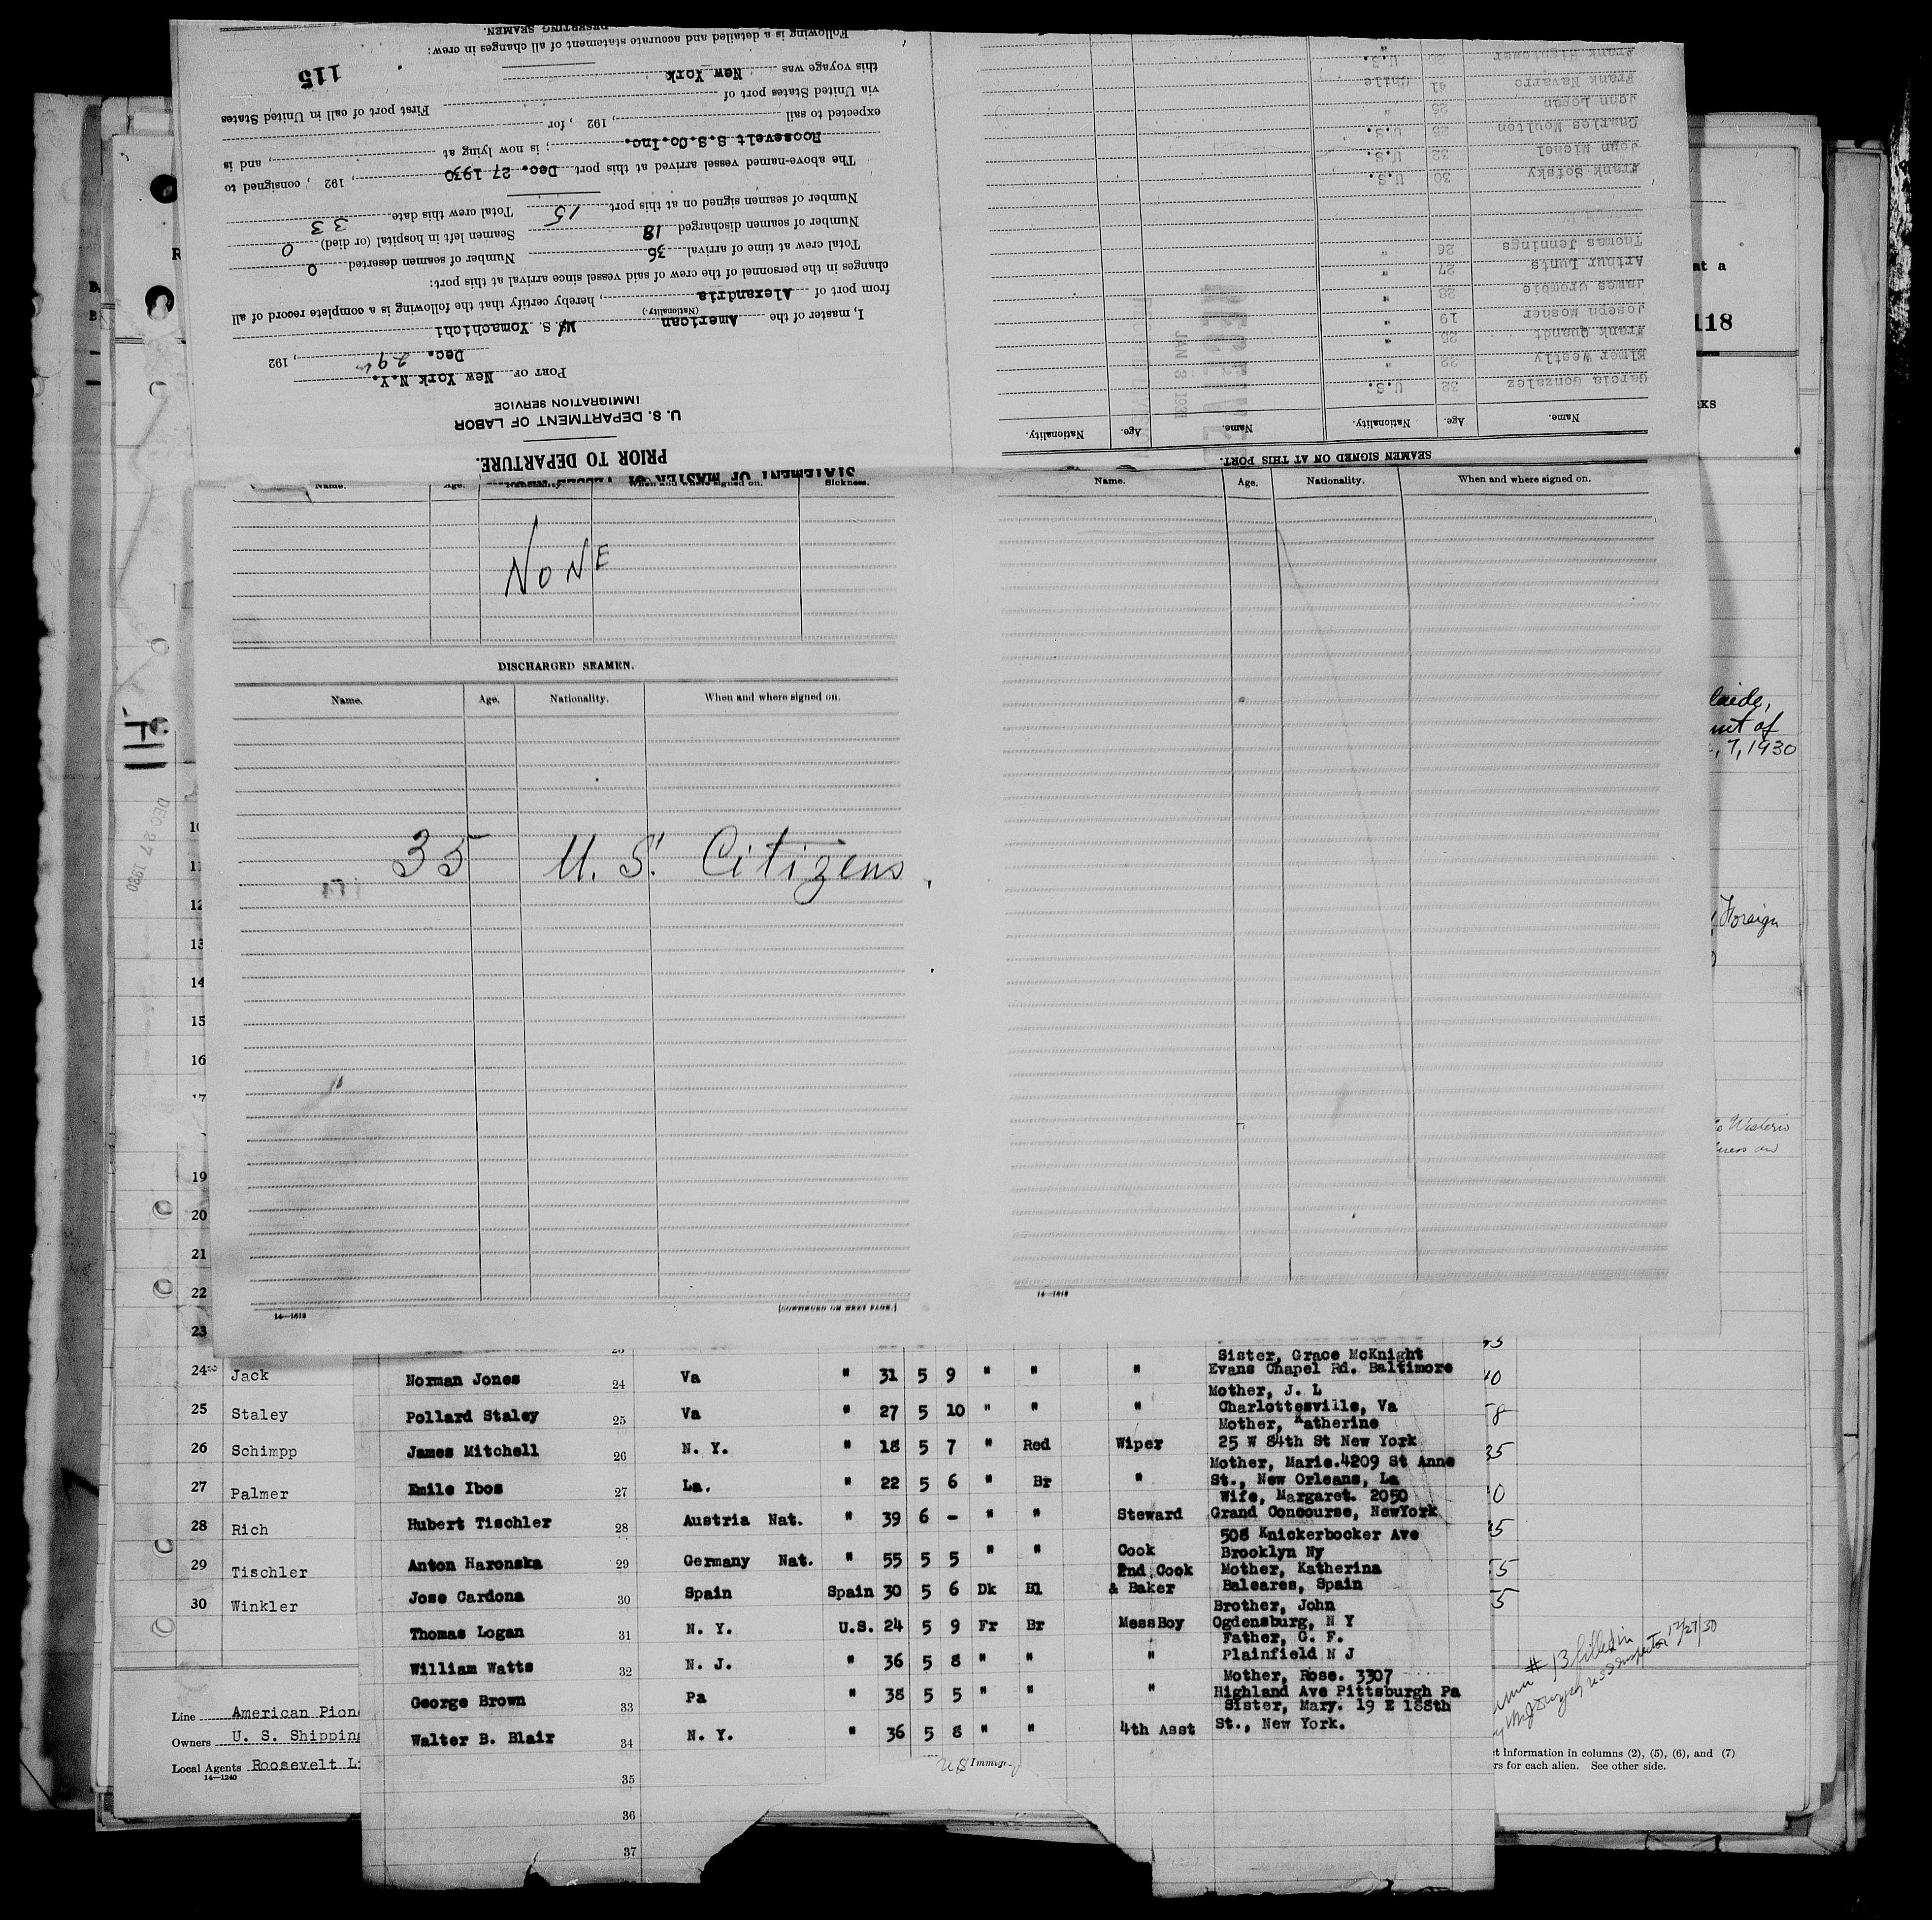 DESERTING SEAMEN.
Following is a detailed and accurate statement of all changes in crew:
115
this voyage was New York
via United States port of
expected to sail , 192 , for First port of call in United States
Roosevelt S.S.Co.Inc. ; is now lying at , and is
The above-named vessel arrived at this port Dec. 27 1930 , 192 , consigned to
Number of seamen signed on at this port 15 Total crew this date 33
Number of seamen discharged 18 Seamen left in hospital (or died) 0
Total crew at time of arrival 36 Number of seamen deserted 0
changes in the personnel of the crew of said vessel since arrival at this port:
from port of Alexandria , hereby certify that the following is a complete record of all
(Nationality.)
I, master of the American S. S. Yomachichi
Dec. 29 , 192
PORT OF New York N.Y.
IMMIGRATION SERVICE
U. S. DEPARTMENT OF LABOR
PRIOR TO DEPARTURE.
STATEMENT OF MASTER OF VESSEL
Frank Hightower U.S.
Frank Navarro 41 Chile
John Logan 25 "
Charles Moulton 25 U.S.
John Michel 32 U.S.
Frank Sofsky 30 U.S.
Thomas Jennings 26 "
Arthur Lunts 27 "
James Crombie 28 "
Joseph Mosher 19 "
Frank Quandt 25 "
Elmer Westly 22 "
Garcia Gonzalez 32 U.S.
RECEIVED
JAN 3
Name. Age. Nationality. Name. Age. Nationality.
SEAMEN SIGNED ON AT THIS PORT.
at a
118
KS
Name. Age. When and where signed on. Sickness.
NONE
DISCHARGED SEAMEN.
Name. Age. Nationality. When and where signed on.
35 U.S. Citizens
14—1618 (CONTINUED ON NEXT PAGE.)
Name. Age. Nationality. When and where signed on.
14—1618
DEC 27 1930
laide,
of
, 7, 1930
Foreign
Western
10
11
12
13
14
15
16
17
19
20
21
22
23
24 Jack
25 Staley
26 Schimpp
27 Palmer
28 Rich
29 Tischler
30 Winkler
Line American Pion
Owners U. S. Shipping
Local Agents Roosevelt Li
14—1240
Sister, Grace McKnight
Norman Jones 24 Va " 31 5 9 " " " Evans Chapel Rd. Baltimore
Mother, J. L
Pollard Staley 25 Va " 27 5 10 " " " Charlottesville, Va
Mother, Katherine
James Mitchell 26 N. Y. " 18 5 7 " Red Wiper 25 W 84th St New York
Mother, Marie.4209 St Anne
Emile Ibos 27 La. " 22 5 6 " Br " St., New Orleans, La
Wife, Margaret. 2050
Hubert Tischler 28 Austria Nat. " 39 6 - " " Steward Grand Concourse, NewYork
508 Knickerbocker Ave
Anton Haronska 29 Germany Nat. " 55 5 5 " " Cook Brooklyn Ny
2nd Cook Mother, Katherina
Jose Cardona 30 Spain Spain 30 5 6 Dk Bl & Baker Baleares, Spain
Brother, John
Thomas Logan 31 N. Y. U.S. 24 5 9 Fr Br MessBoy Ogdensburg, N Y
Father, G. F.
William Watts 32 N. J. " 36 5 8 " " " Plainfield N J
Mother, Rose. 3307
George Brown 33 Pa " 38 5 5 " " " Highland Ave Pittsburgh Pa
Sister, Mary. 19 E 188th
Walter B. Blair 34 N. Y. " 36 5 8 " " 4th Asst St., New York.
35
36
37
# 13 filled in
Inspector 12/27/30
Information in columns (2), (5), (6), and (7)
rs for each alien. See other side.